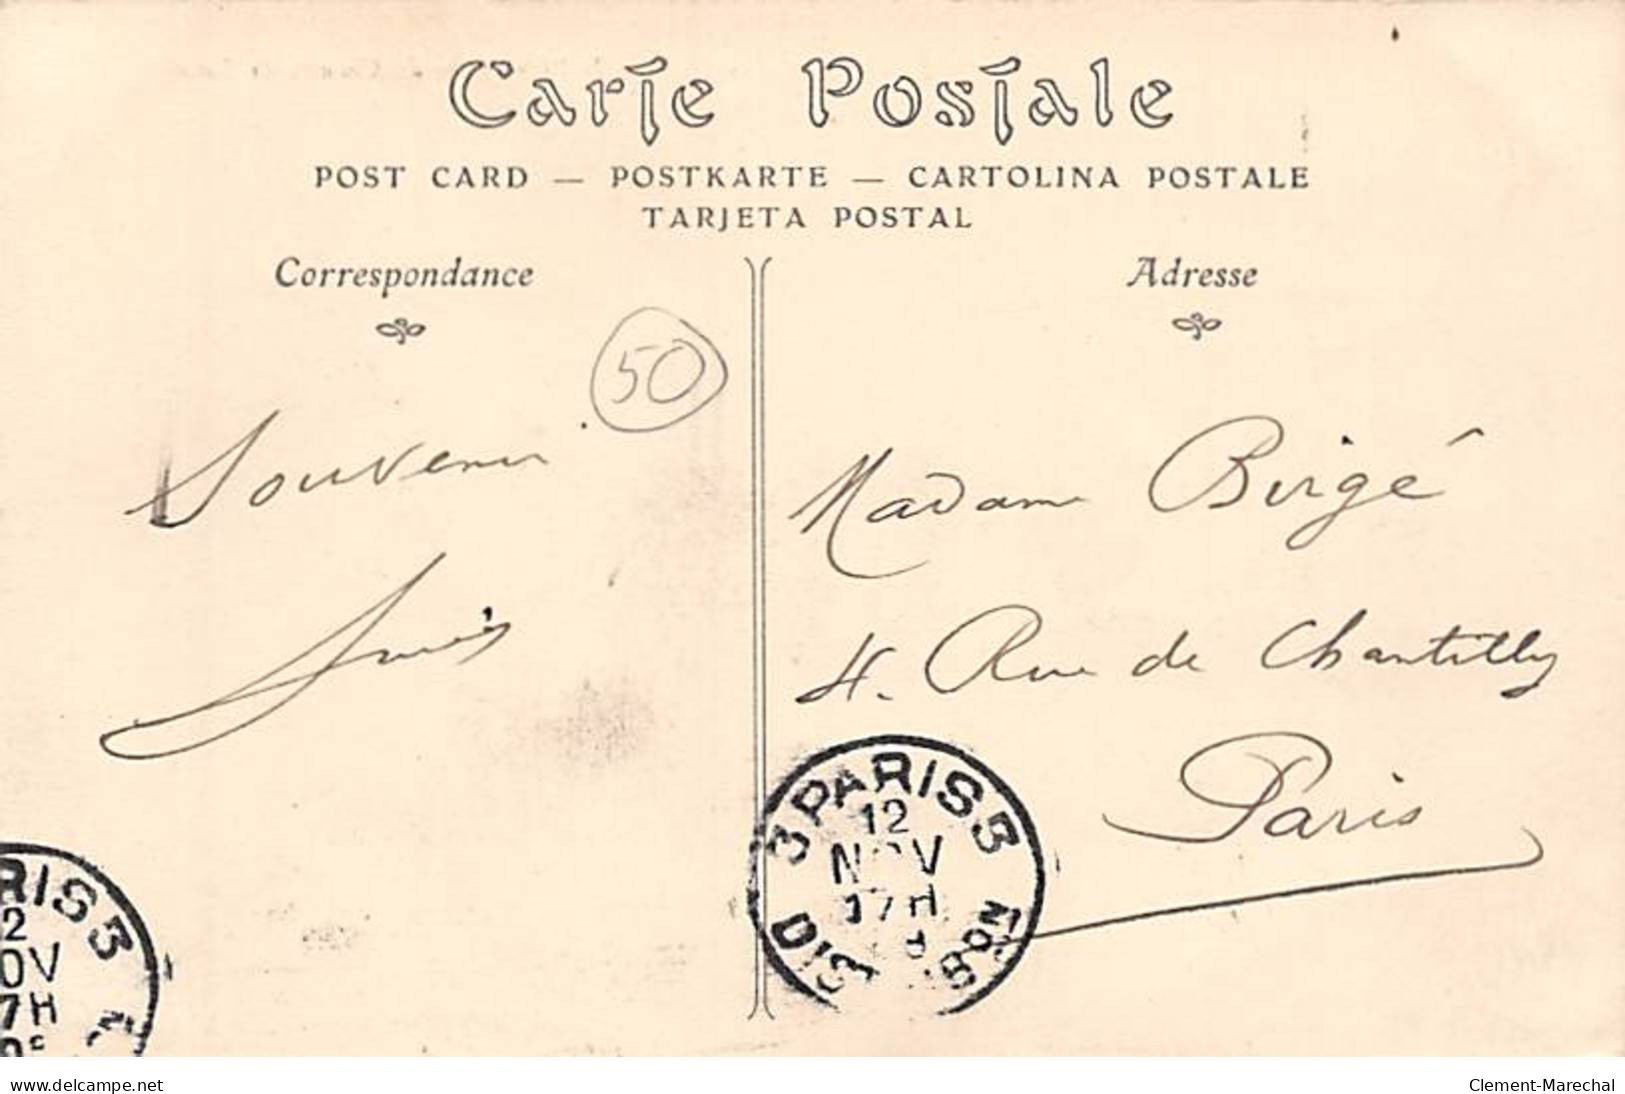 Carte Postale
POST CARD — POSTKARTE — CARTOLINA POSTALE
TARJETA POSTAL
Correspondance
Adresse
50
Souvenir
Madame Birgé
4. Rue de Chantilly
Paris
3 PARIS 3
12
NOV
17H
DISTRIBON
RIS 3
2
OV
7H
www.delcampe.net
Clement-Marechal